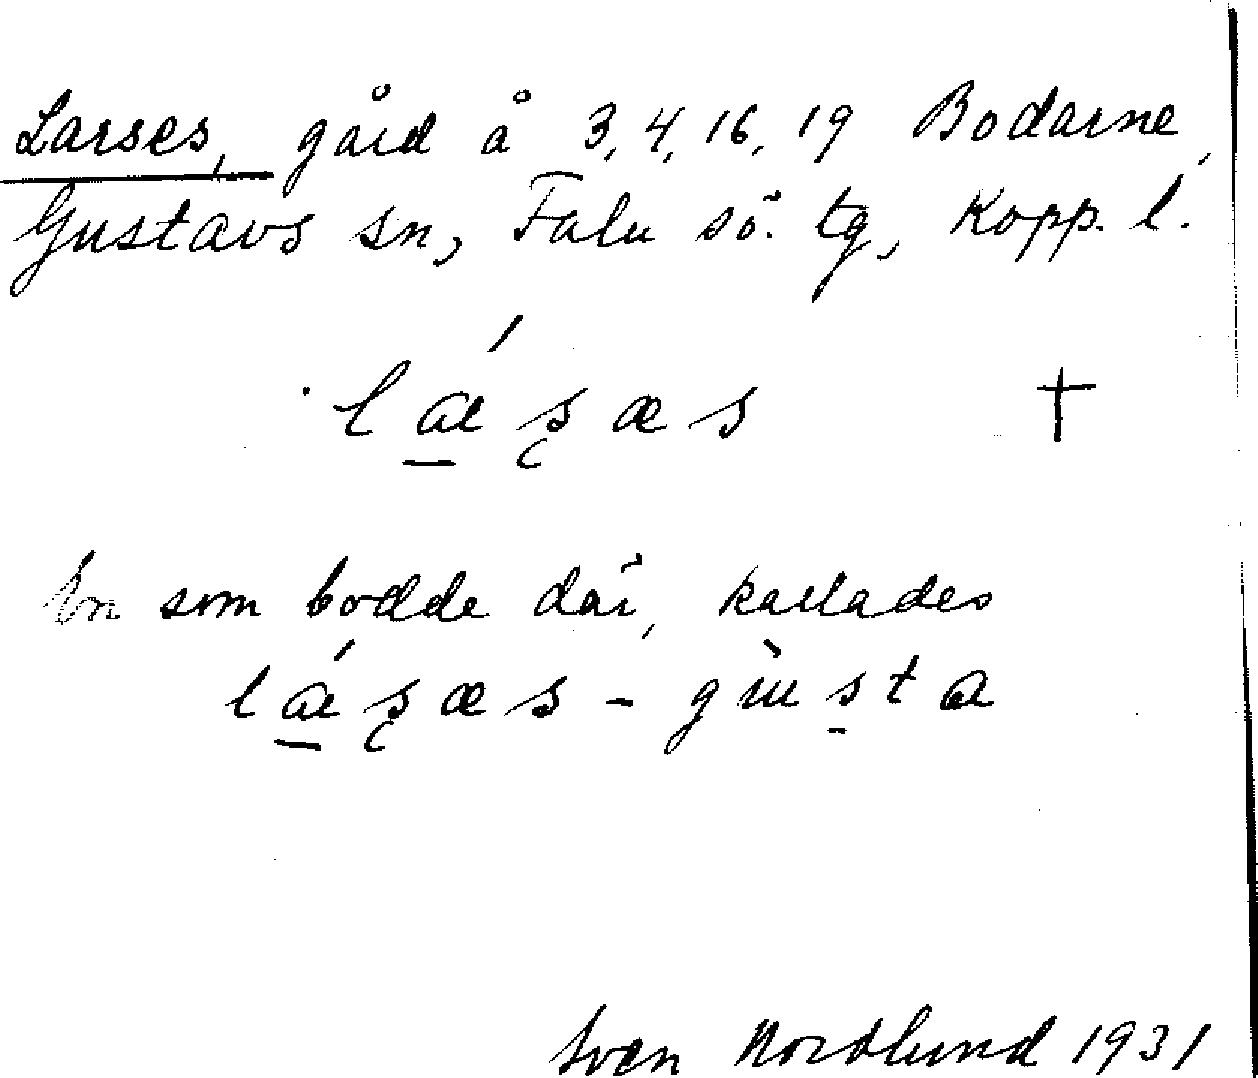 Larses, gård å 3, 4, 16, 19 Bodarne,
Gustavs sn, Falu sö. tg, Kopp. l.
l ǽ s̨ æ s †
En som bodde där, kallades
l ǽ s̨ æ s - g ù s t a
Sven Nordlund 1931